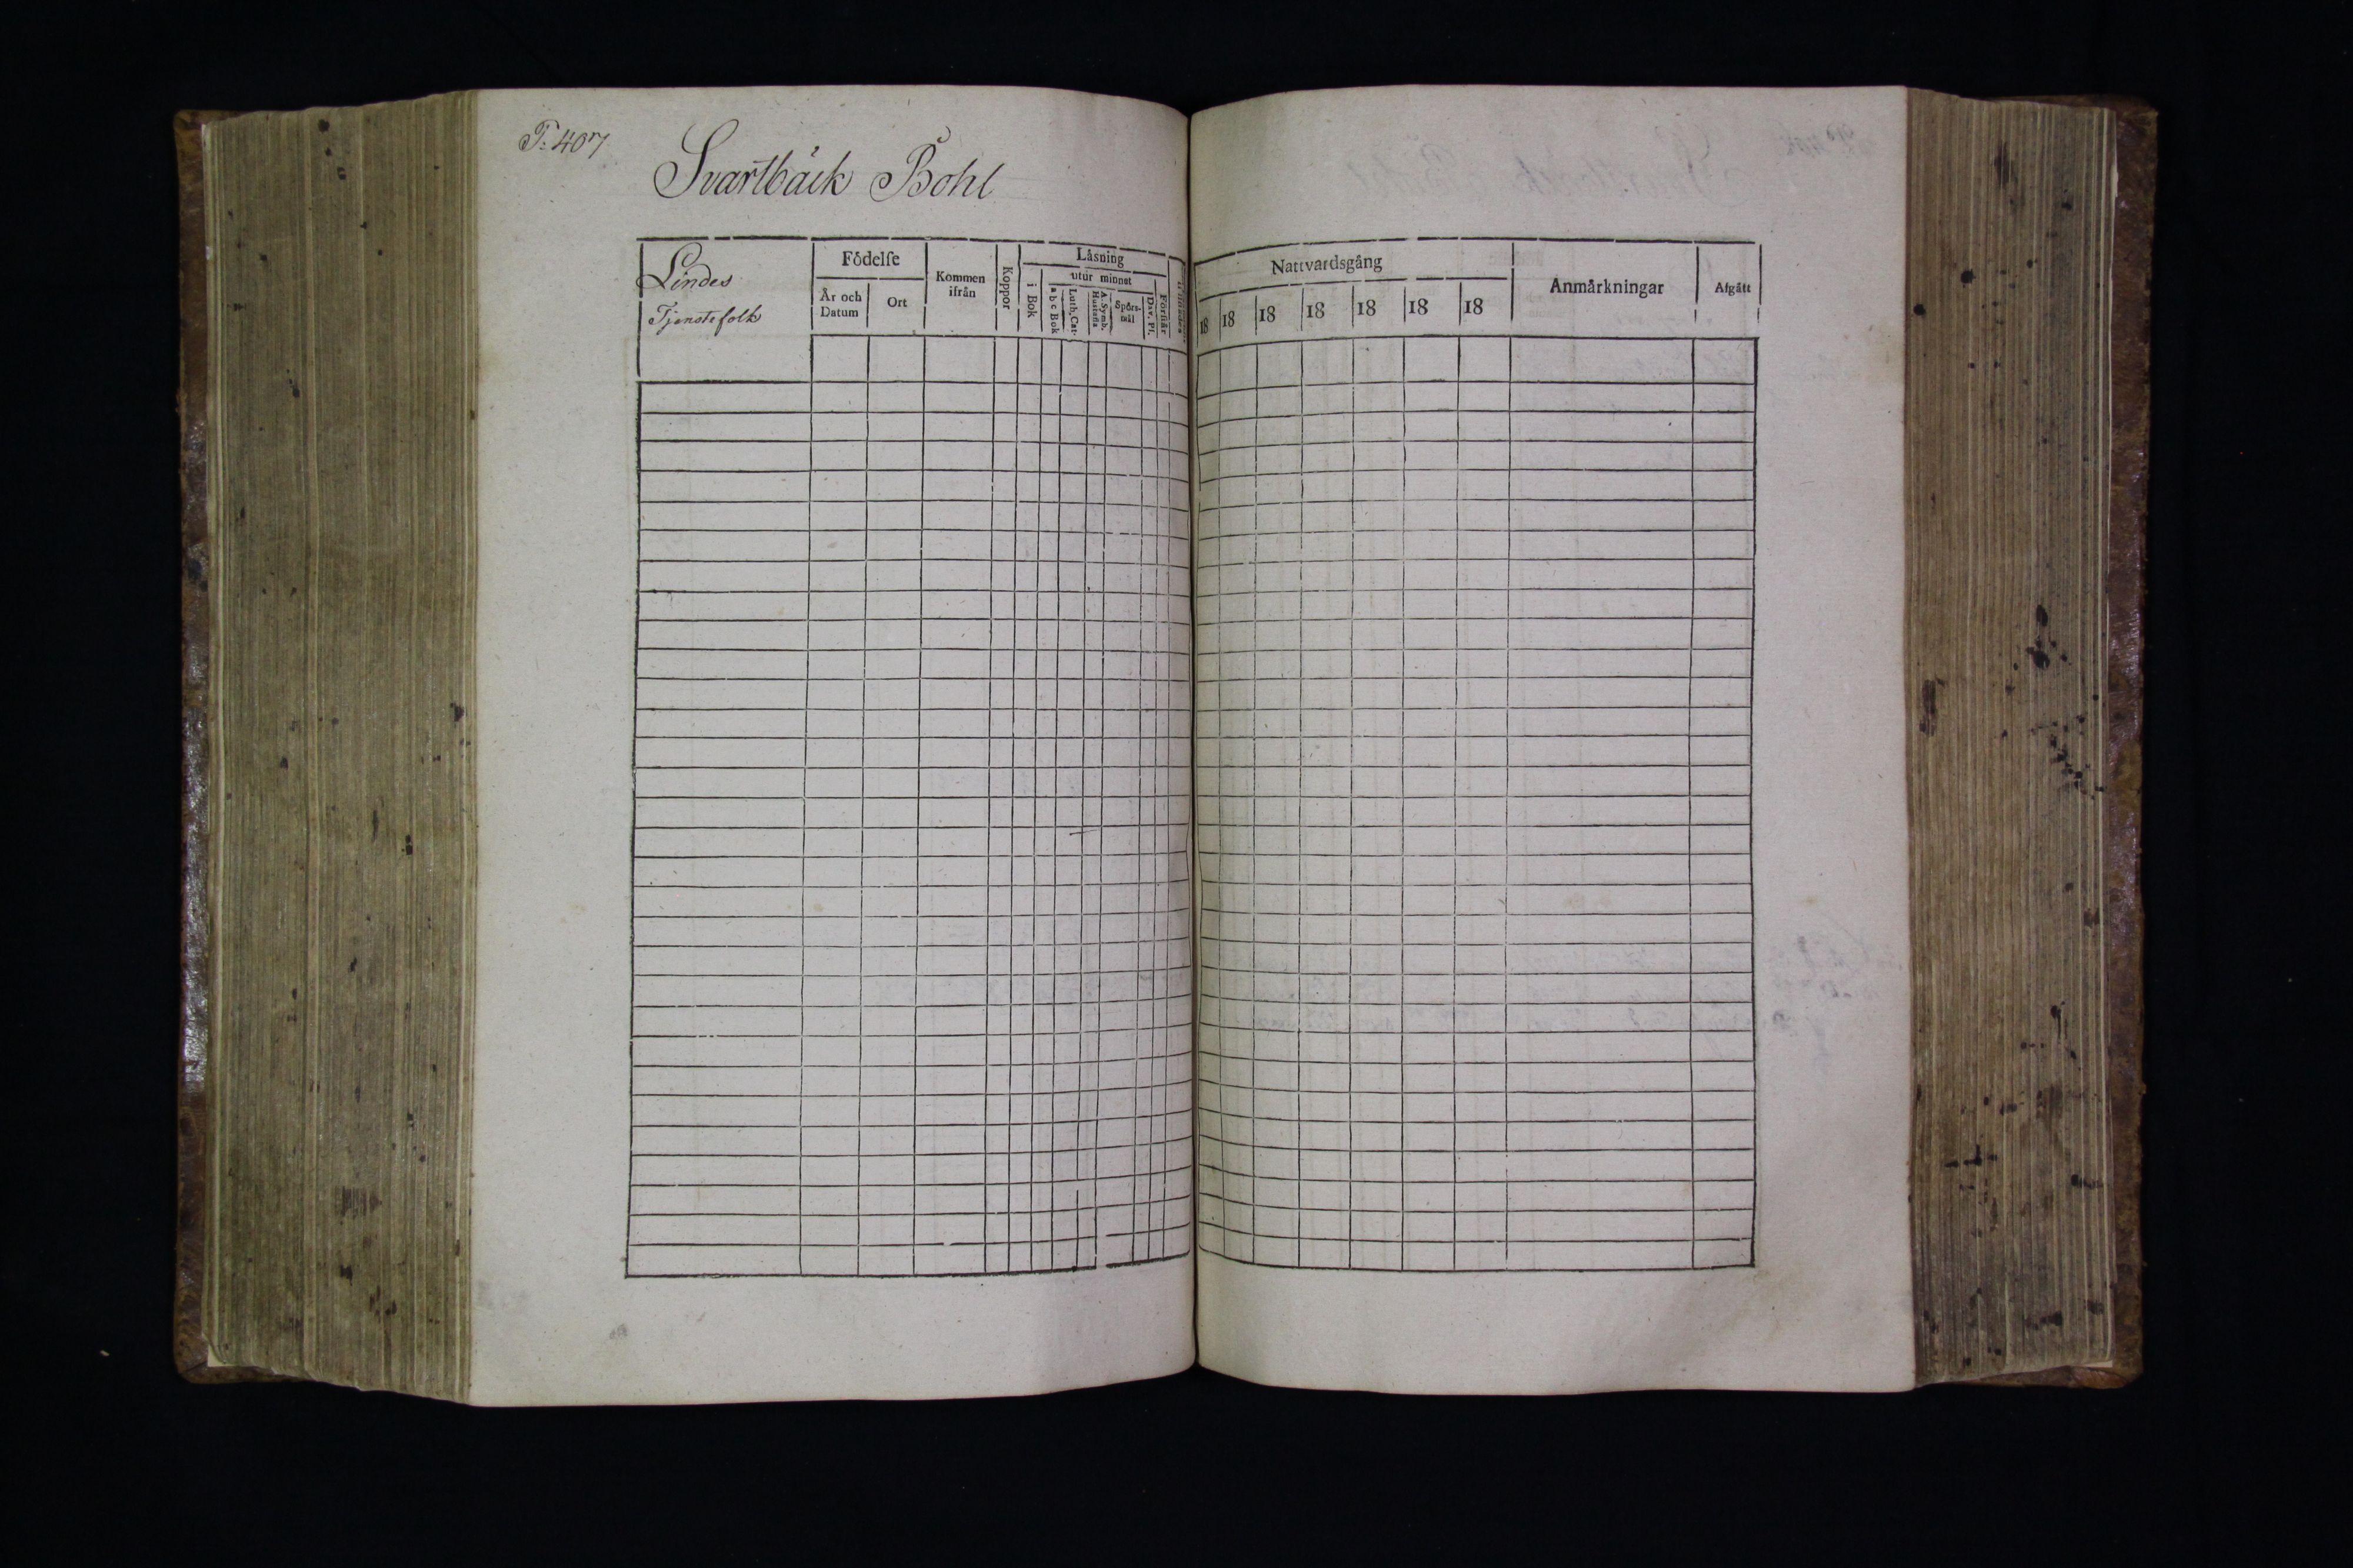 P. 407
Svartbäck Bohl
Lindes
Tjenstefolk
Födelse
År och Datum
Ort
Kommen ifrån
Koppor
Läsning
i Bok
utur minnet
a b c Bok
Luth. Cat.
A. Symb. Hustafla
Spörsmål
Dav. Ps.
Förstår
Nattvardsgång
18 18 18 18 18 18 18
Anmärkningar
Afgått